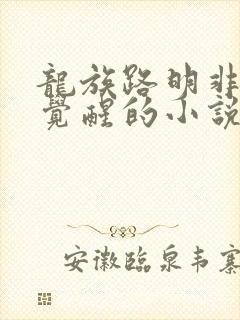 龍族路明非
覺醒的小説
安徽臨泉韦寨